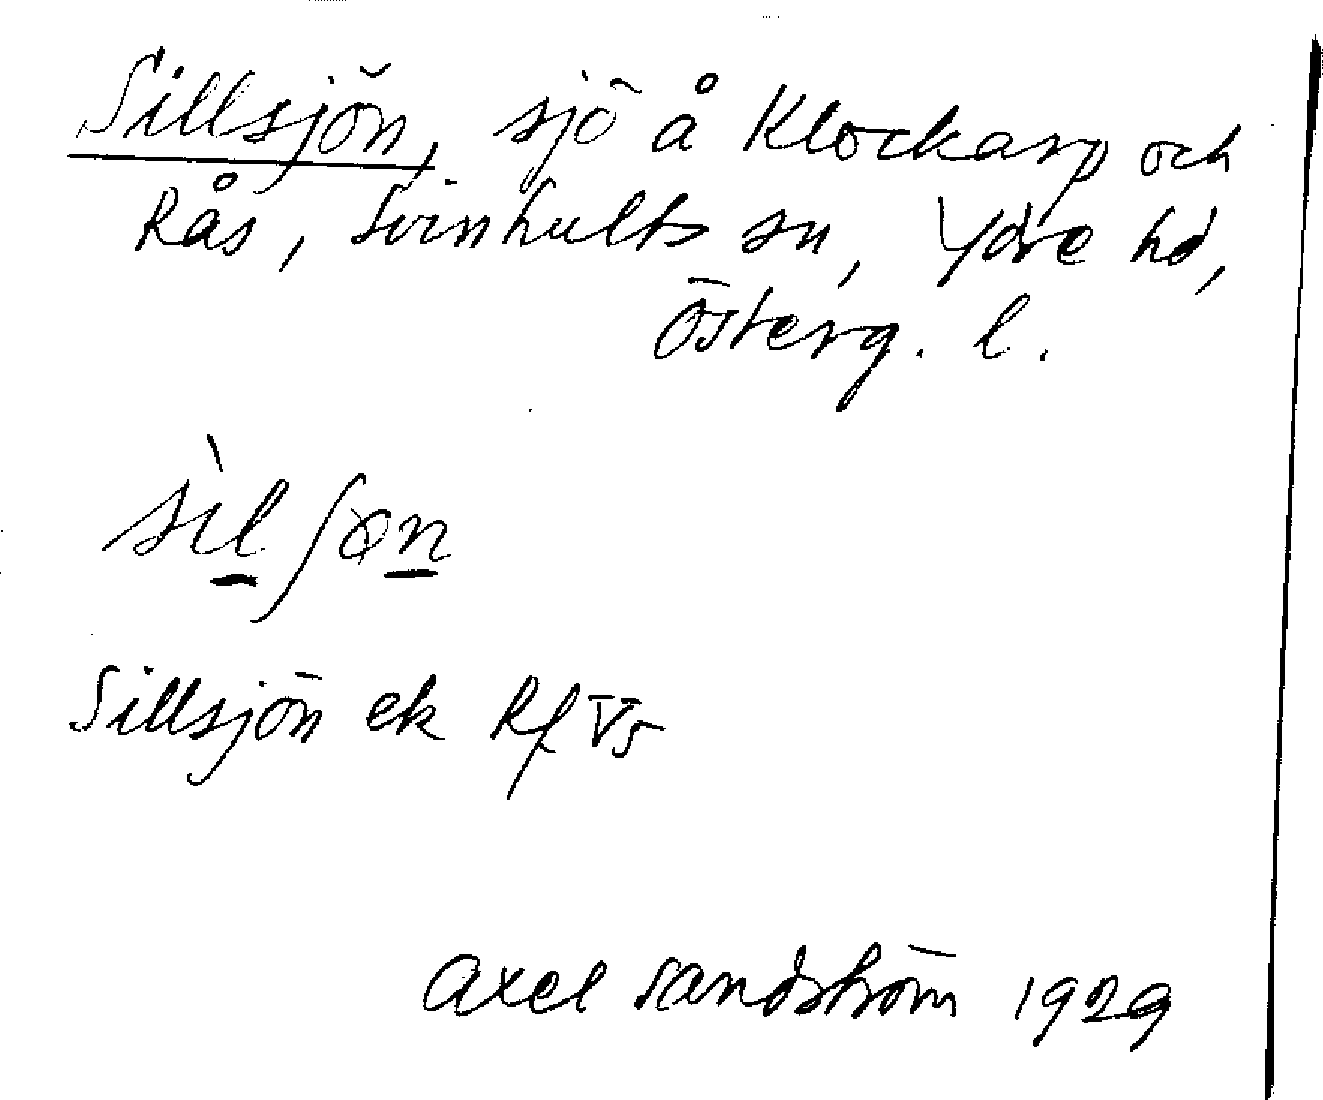 Sillsjön, sjö å Klockarp och
Rås, Svinhults sn, Ydre hd,
Österg. l.
sìl ʃøn
Sillsjön ek Rf V5
Axel Sandström 1929